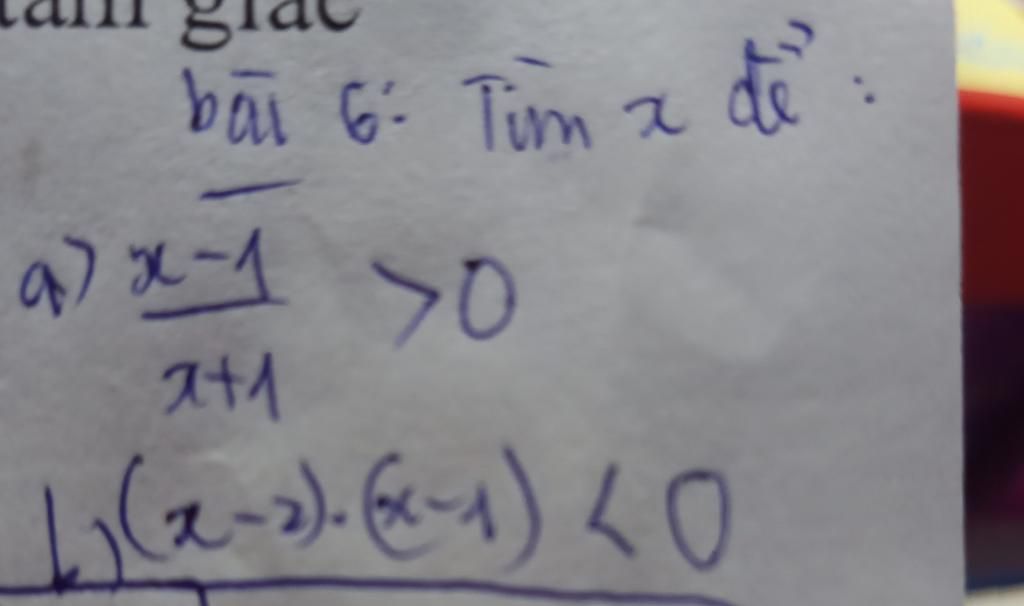 tam giác
bài 6: Tìm x để :
a) x-1 / x+1 > 0
b) (x-2).(x-1) < 0